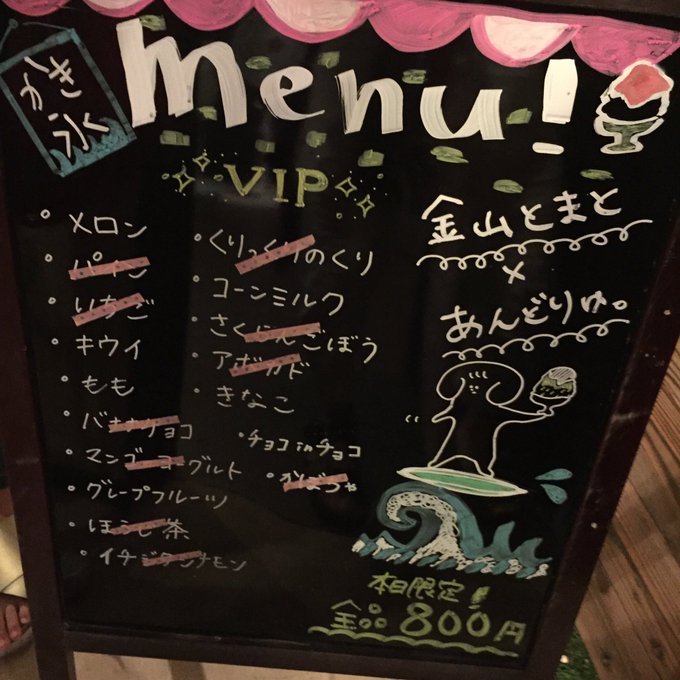 かき氷
Menu!
VIP
・メロン
・パイン
・いちご
・キウイ
・もも
・バナナチョコ
・マンゴーヨーグルト
・グレープフルーツ
・ほうじ茶
・イチジクシナモン
・くりっくりのくり
・コーンミルク
・さくらんごぼう
・アボカド
・きなこ
・チョコinチョコ
・かぼちゃ
金山とまと
×
あんどりゅ。
本日限定!
全品800円